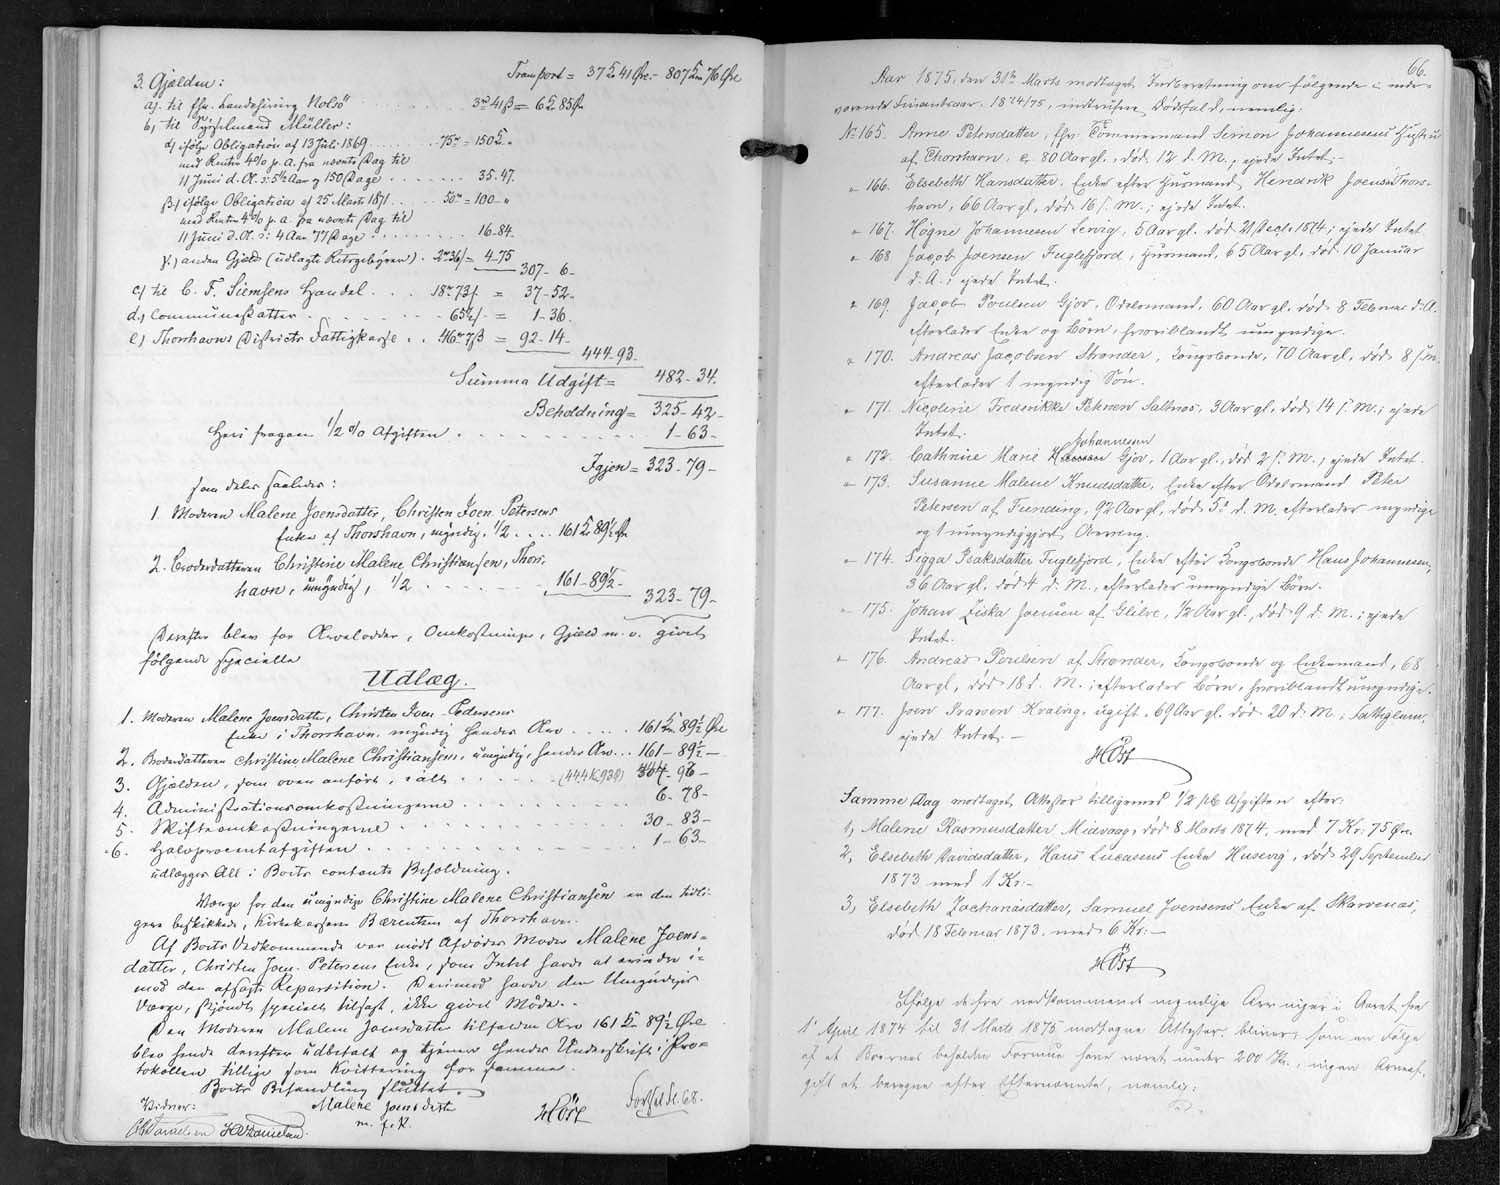 Transport = 37 41 Øre - 807 76 Øre
3. Gjælden:
a). til fhv. Landhfüring Nolsö 3 41ß = 6 85 Ør
b) til Sysselmand Müller:
α) ifølge Obligation af 13 Juli 1869 75 = 150 "
med Renter 4% p. A. fra nævnte Dag til
11 Juni d. A. ɔ: 5½ Aar og 150 Dage 35. 47.
β) ifølge Obligation af 25 Marts 1871 50 = 100 "
med Renter 4% p. a. fra nævnte Dag til
11 Juni d. A. ɔ: 4 Aar 77 Dage 16-84.
γ.) anden Gjæld (udlagte Retsgebyrer) . 2 36ß = 4-75
307- 6-
c) til C. F. Siemsens Handel . . . 18 73ß = 37-52-
d) Communeskatter 65½ß = 1-36
e) Thorshavns Districts Fattigkasse . . 46 7ß = 92-14-
444-93.
Summa Udgift = 482-34.
Beholdning = 325-42-
Heri fragaar ½ % Afgiften 1-63-
Igjen = 323-79-
som deles saaledes:
1. Moderen Malene Joensdatter, Christen Joen Petersens
Enke af Thorshavn, myndig, ½ 161 89½ Ør
2. Broderdatteren Christine Malene Christiansen, Thors-
havn, umyndig, ½ 161-89½-
323-79-
Derefter blev for Arvelodder, Omkostninger, Gjæld m. v. givet
følgende specielle
Udlæg.
1. Moderen Malene Joensdatter, Christen Joen Pedersens
Enke i Thorshavn, myndig hendes Arv 161 89½ Øre
2. Broderdatteren Christine Malene Christiansen, umyndig, hendes Arv . . 161-89½-
3. Gjælden, som oven anført, i alt (444 Kr 93 Ø)
4. Administrationsomkostningerne 6-78-
5. Skifteomkostningerne 30-83-
6. Halvprocentafgiften 1-63-
udlægges Alt i Boets contante Beholdning.
Værge for den umyndige Christine Malene Christiansen er den tidli-
gere beskikkede, Kirkekasserer Bærentsen af Thorshavn.
Af Boets Vedkommende var mødt Afdødes Moder Malene Joens-
datter, Christen Joen Petersens Enke, som Intet havde at erindre i-
mod den affagte Repartition. Derimod havde den Umyndiges
Værge, skjøndt specielt tilsagt, ikke givet Møde.
Den Moderen Malene Joensdatter tilfaldne Arv 161 - 89½ Øre
blev hende derefter udbetalt og tjener hendes Underskrift i Pro-
tokollen tillige som Kvittering for samme.
Boets Behandling sluttet.
Vidner: Malene Joensdatter
m. f. P. HØst Forts. fol. 68.
66.
Aar 1875, den 31te Marts modtaget Indberetning om følgende i inde-
værende Finantsaar 1874/75, indtrufne Dødsfald, nemlig:
No 165. Anne Petersdatter, fhv. Tømmermand Simon Johannesens Hustru
af Thorshavn, c. 80 Aar gl., død 12 d. M.; ejede Intet.-
" 166. Elsebeth Hansdatter, Enke efter Husmand Hendrik Joensen Thors-
havn, 66 Aar gl., død 16 s. M.; ejede Intet.
" 167. Høgne Johannesen Lervig, 5 Aar gl. død 21 Decbr. 1874; ejede Intet
" 168 Jacob Joensen Fuglefjord, Husmand, 65 Aar gl., død 10 Januar
d. A.; ejede Intet.
" 169. Jacob Poulsen Gjov, Odelsmand, 60 Aar gl., død 8 Februar d. A.
efterlader Enke og Børn, hvoriblandt umyndige.
" 170. Andreas Jacobsen Strønder, Kongsbonde, 70 Aar gl., død 8 s. M.
efterlader 1 myndig Søn.
" 171. Nicoline Frederikke Petersen Saltnæs, 3 Aar gl., død 14 s. M.; ejede
Intet.
Johannesen
" 172. Cathrine Marie Hansen Gjov, 1 Aar gl., død 2 s. M.; ejede Intet.
" 173. Susanne Malene Knudsdatter, Enke efter Odelsmand Peter
Petersen af Funding, 92 Aar gl., død 5 d. M. efterlader myndige
og 1 umyndiggjort Arving.
" 174. Sigga Isaksdatter Fuglefjord, Enke efter Kongsbonde Hans Johannesen,
36 Aar gl., død 4 d. M., efterlader umyndige Børn.
" 175. Johan Ziska Joensen af Glibre, ½ Aar gl., død 9 d. M.; ejede
Intet.
" 176. Andreas Poulsen af Strønder, Kongsbonde og Enkemand, 68
Aar gl., død 18 d. M.; efterlader Børn, hvoriblandt umyndige.
" 177. Joen Ivarsen Kvalvig, ugift, 69 Aar gl. død 20 d. M.; Fattiglem,
ejede Intet.-
HØst
Samme Dag modtaget Attester tilligemed ½ pCt. Afgiften efter:
1, Malene Rasmusdatter Midvaag, død 8 Marts 1874, med 7 Kr. 75 Øre.
2, Elsebeth Davidsdatter, Hans Lucasens Enke Husevig, død 29 September
1873 med 1 Kr.-
3, Elsebeth Zachariasdatter, Samuel Joensens Enke af Skarvenæs,
død 18 Februar 1873, med 6 Kr.-
HØst
Ifølge de fra vedkommende myndige Arvinger i Aaret fra
1 April 1874 til 31 Marts 1875 modtagne Attester, bliver, som en Følge
af at Boernes beholdne Formue have været under 200 Kr., ingen Arveaf-
gift at beregne efter Efternævnte, nemlig: